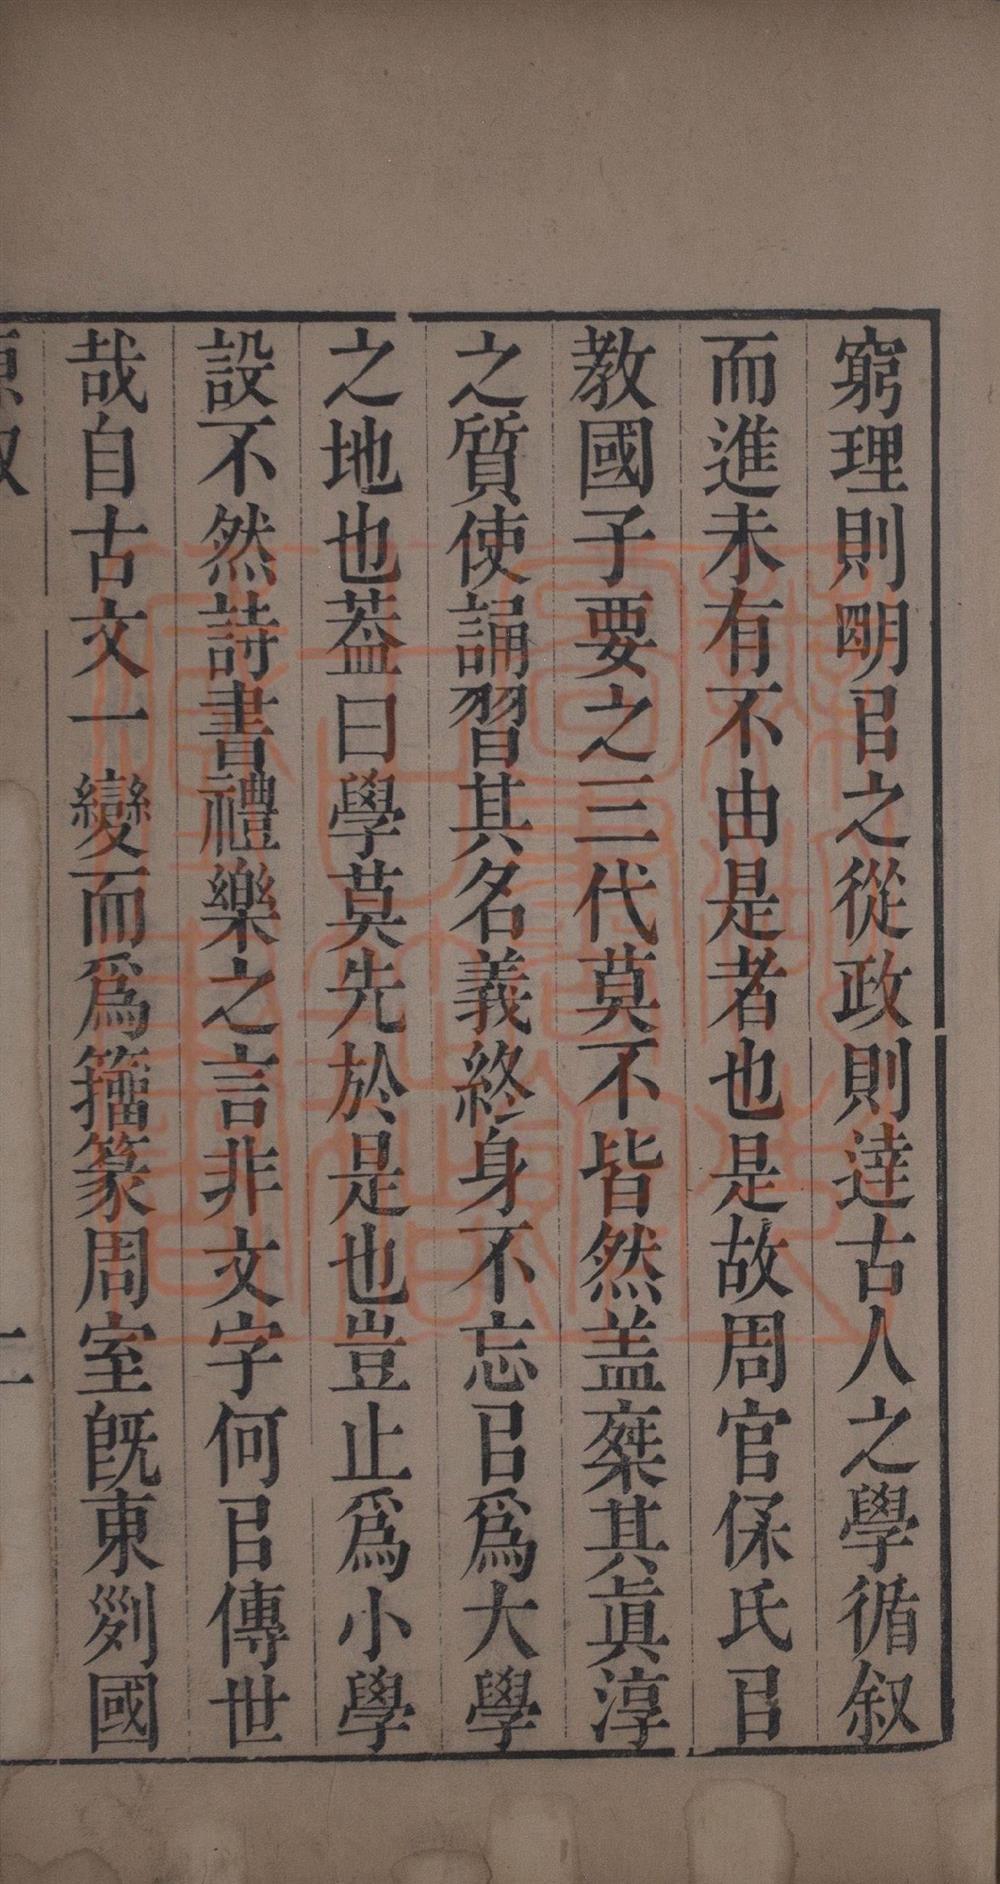 窮理則朙㠯之從政則達古人之學循叙
而進未有不由是者也是故周官保氏㠯
教國子要之三代莫不皆然盖乘其眞淳
之質使誦習其名義終身不忘㠯爲大學
之地也葢曰學莫先於是也豈止爲小學
設不然詩書禮樂之言非文字何㠯傳世
哉自古文一變而爲籒篆周室旣東列國